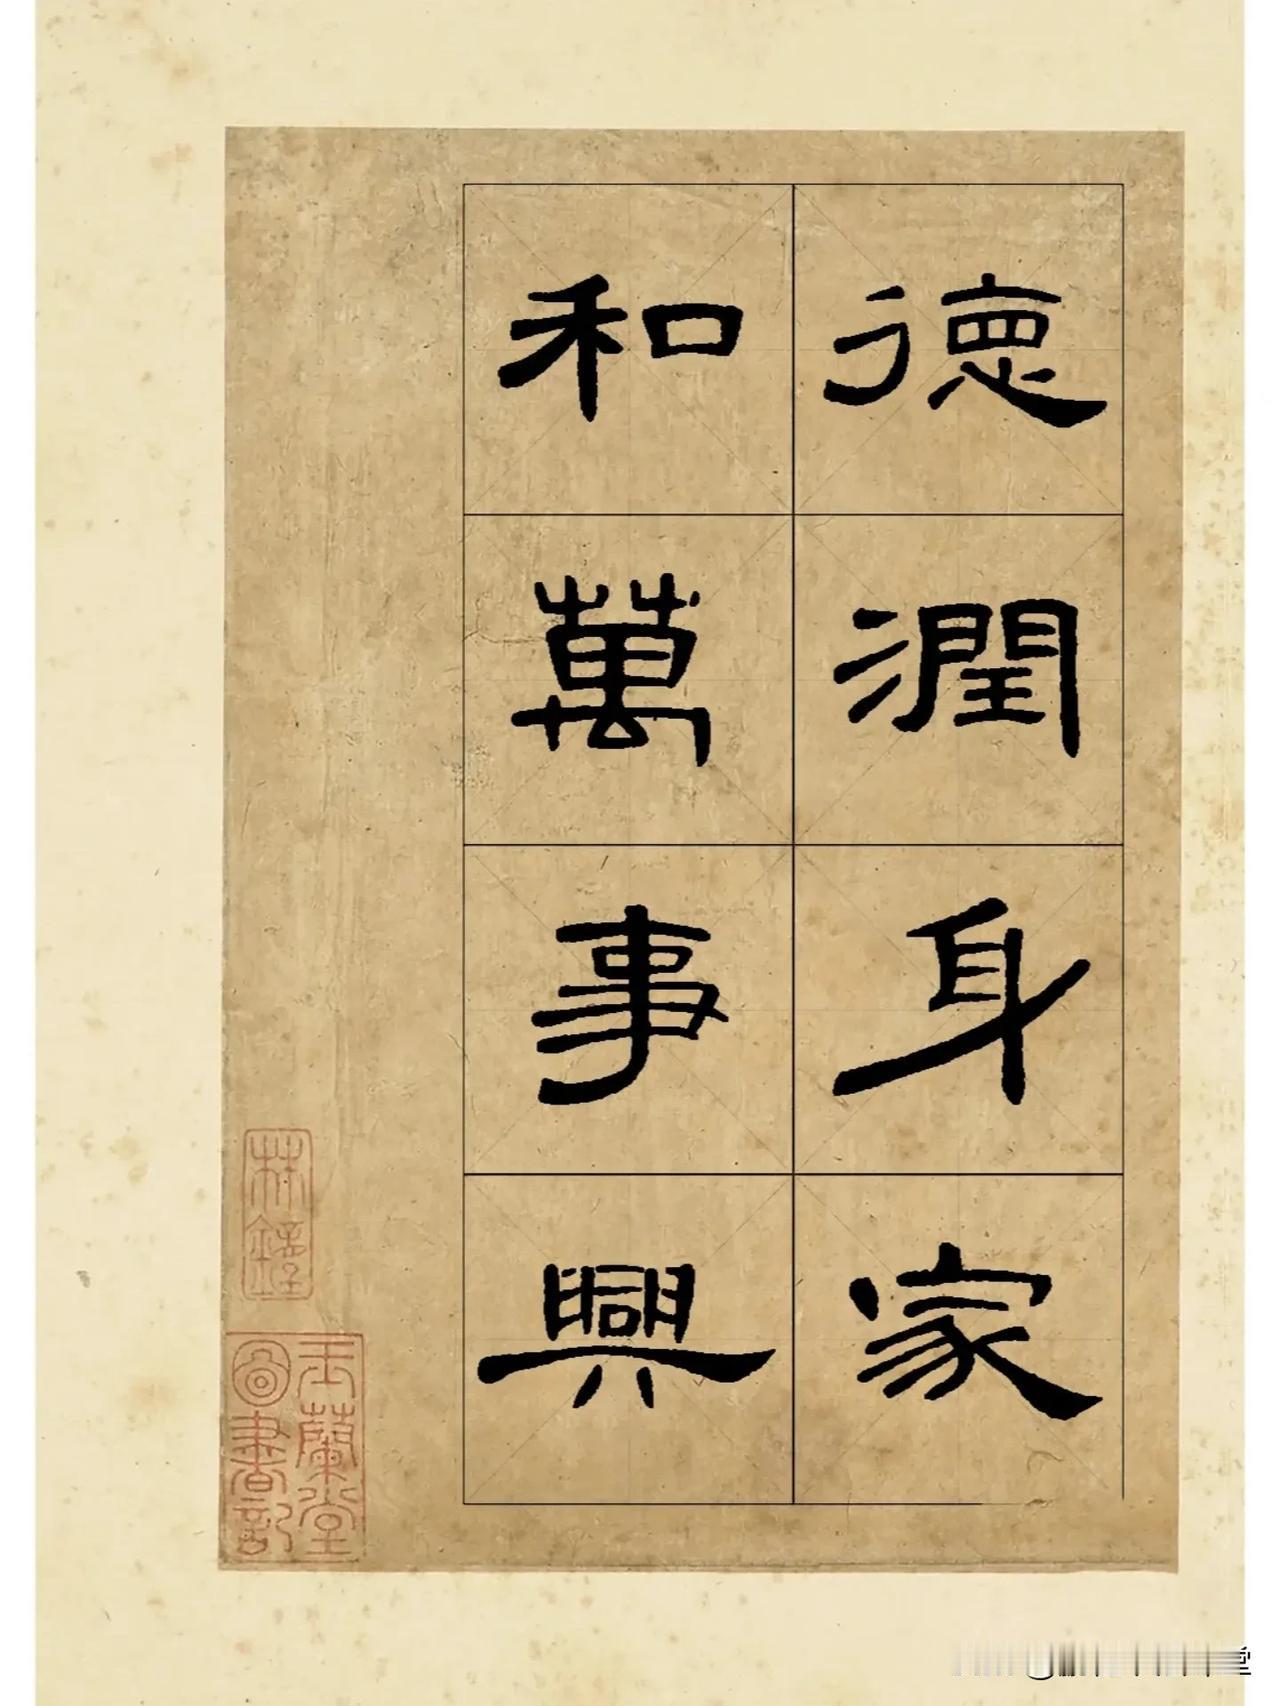 德潤身家
和萬事興
玉蘭堂
圖書記